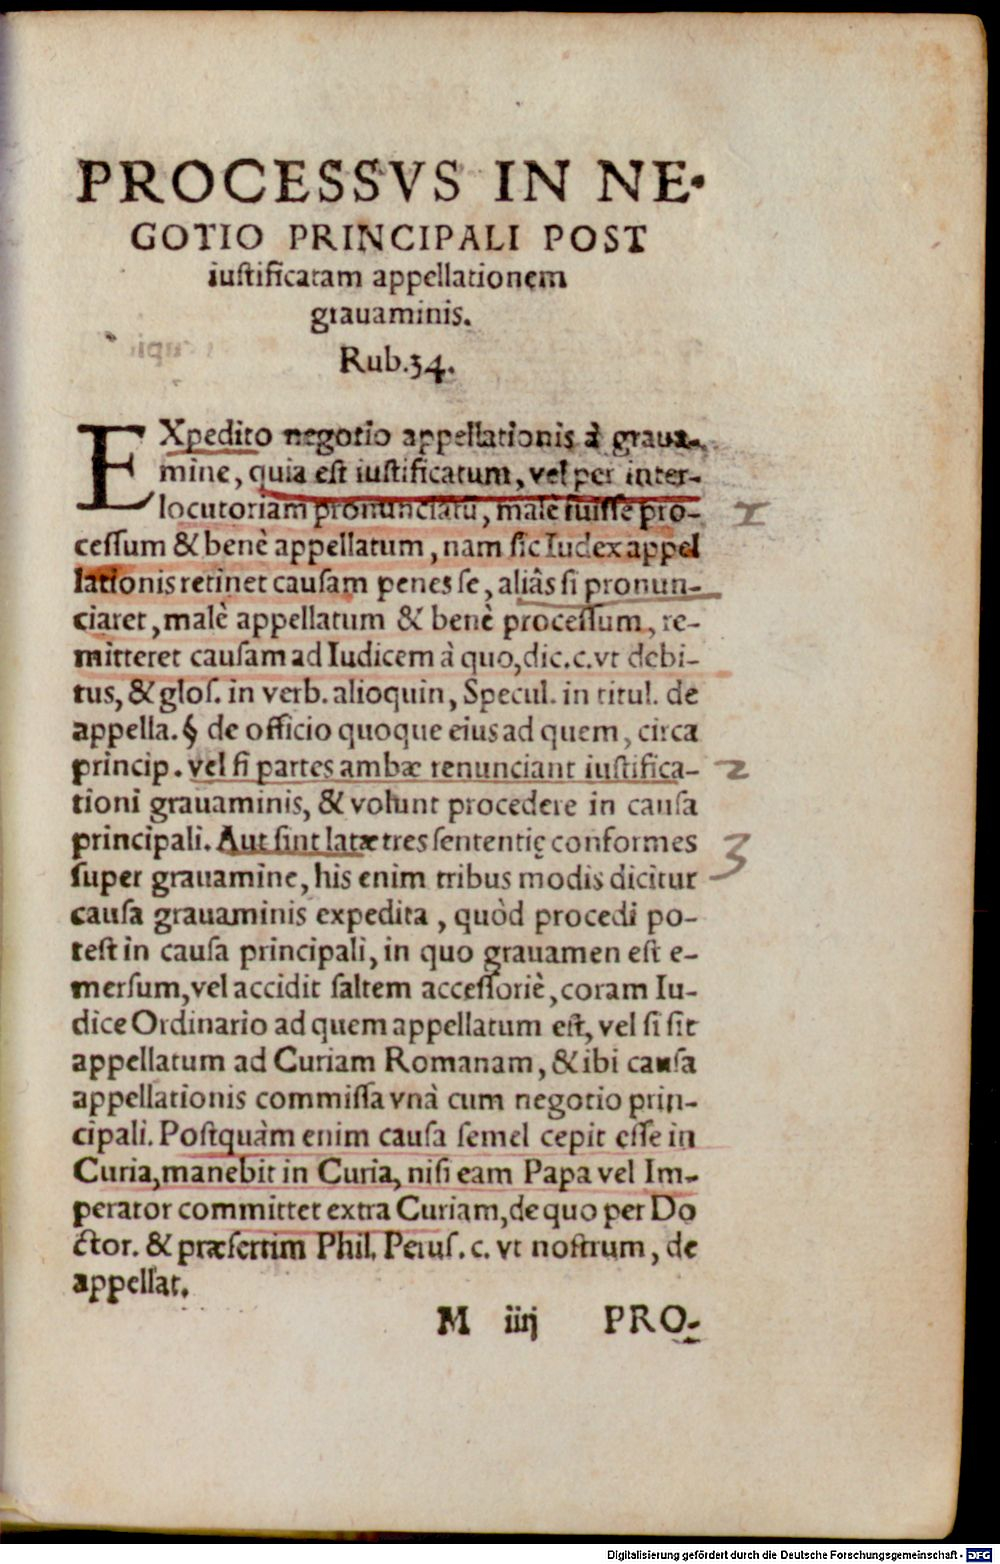 PROCESSVS IN NE-
GOTIO PRINCIPALI POST
iustificatam appellationem
grauaminis.
Rub.34.
EXpedito negotio appellationis à graua-
mine, quia est iustificatum, vel per inter-
locutoriam pronunciatũ, malè fuisse pro-
cessum & benè appellatum, nam sic Iudex appel
lationis retinet causam penes se, aliâs si pronun-
ciaret, malè appellatum & benè processum, re-
mitteret causam ad Iudicem à quo, dic. c. vt debi-
tus, & glos. in verb. alioquin, Specul. in titul. de
appella. § de officio quoque eius ad quem, circa
princip. vel si partes ambæ renunciant iustifica-
tioni grauaminis, & volunt procedere in causa
principali. Aut sint latæ tres sententię conformes
super grauamine, his enim tribus modis dicitur
causa grauaminis expedita, quòd procedi po-
test in causa principali, in quo grauamen est e-
mersum, vel accidit saltem accessoriè, coram Iu-
dice Ordinario ad quem appellatum est, vel si sit
appellatum ad Curiam Romanam, & ibi causa
appellationis commissa vnà cum negotio prin-
cipali. Postquàm enim causa semel cepit esse in
Curia, manebit in Curia, nisi eam Papa vel Im-
perator committet extra Curiam, de quo per Do
ctor. & præsertim Phil. Perus. c. vt nostrum, de
appellat.
M iiij PRO-
1
2
3
Digitalisierung gefördert durch die Deutsche Forschungsgemeinschaft - DFG